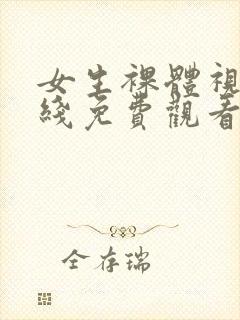 女生裸體視
綫免費觀看
全存瑞